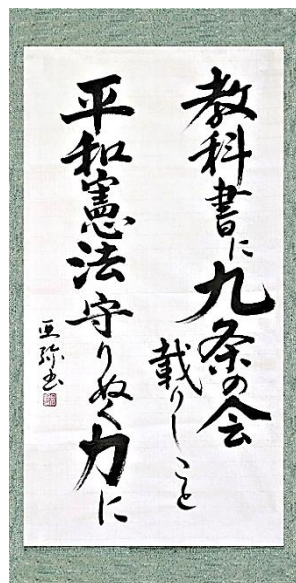 教科書に九条の会
載りしこと
平和憲法守りぬく力に
亜弥書